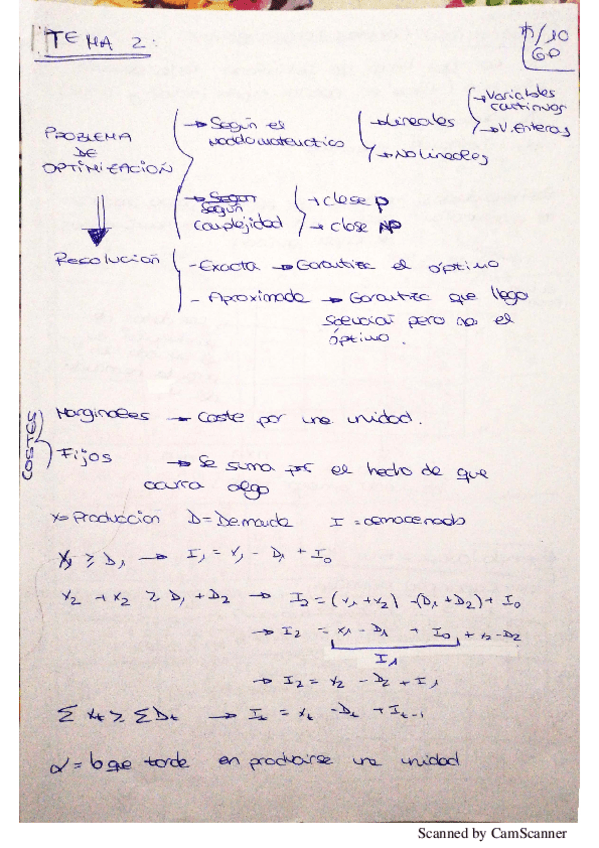 TEMA 2:
/10
GP
PROBLEMA DE OPTIMIZACIÓN
→ Según el modelo matemático
→ Lineales
→ Variables continuas
→ V. Enteras
→ No lineales
→ Según complejidad
→ clase P
→ clase NP
Resolución
- Exacta → Garantiza el óptimo
- Aproximada → Garantiza que llego
solución pero no el
óptimo.
COSTES
Marginales → Coste por una unidad.
Fijos → Se suma por el hecho de que
ocurra algo
x = Producción D = Demanda I = almacenado
X₁ ≥ D₁ → I₁ = x₁ - D₁ + I₀
x₂ + x₂ ≥ D₁ + D₂ → I₂ = (x₁ + x₂) - (D₁ + D₂) + I₀
→ I₂ = x₁ - D₁ + I₀ + x₂ - D₂
I₁
→ I₂ = x₂ - D₂ + I₁
Σ Xt ≥ Σ Dt → It = xt - Dt + It-1
α = lo que tarde en producirse una unidad
Scanned by CamScanner